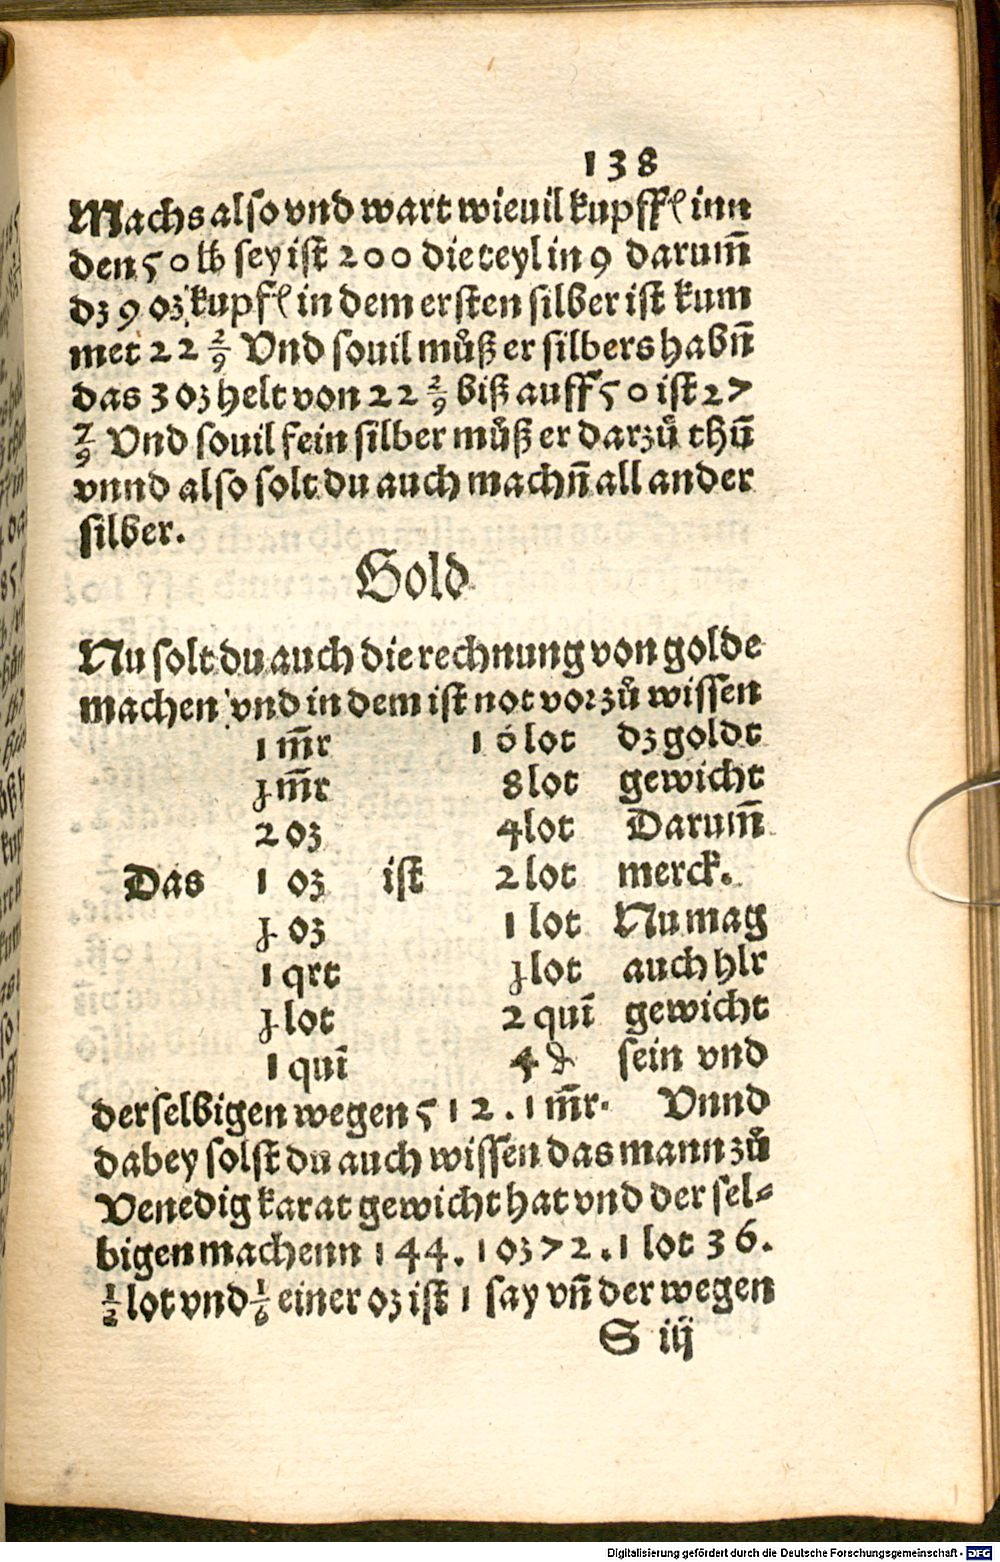 138
Machs also vnd wart wieuil kupffʼ inn
den 50 lb sey ist 200 die teyl in 9 darum̄
dz 9 oz kupfʼ in dem ersten silber ist kum
met 22 2/9 Vnd souil můß er silbers habn̄
das 3 oz helt von 22 2/9 biß auff 50 ist 27
7/9 Vnd souil fein silber můß er darzů thū
vnnd also solt du auch machn̄ all ander
silber.
Gold
Nu solt du auch die rechnung von golde
machen vnd in dem ist not vor zů wissen
1 m̄r 16 lot dz goldt
½ m̄r 8 lot gewicht
2 oz 4 lot Darum̄
Das 1 oz ist 2 lot merck.
½ oz 1 lot Nu mag
1 qrt ½ lot auch hlr
½ lot 2 quī gewicht
1 quī 4 ₰ sein vnd
derselbigen wegen 512. 1 m̄r. Vnnd
dabey solst du auch wissen das mann zů
Venedig karat gewicht hat vnd der sel⸗
bigen machenn 144. 1 oz 72. 1 lot 36.
½ lot vnd 1/6 einer oz ist 1 say vn̄ der wegen
S iij
Digitalisierung gefördert durch die Deutsche Forschungsgemeinschaft - DFG